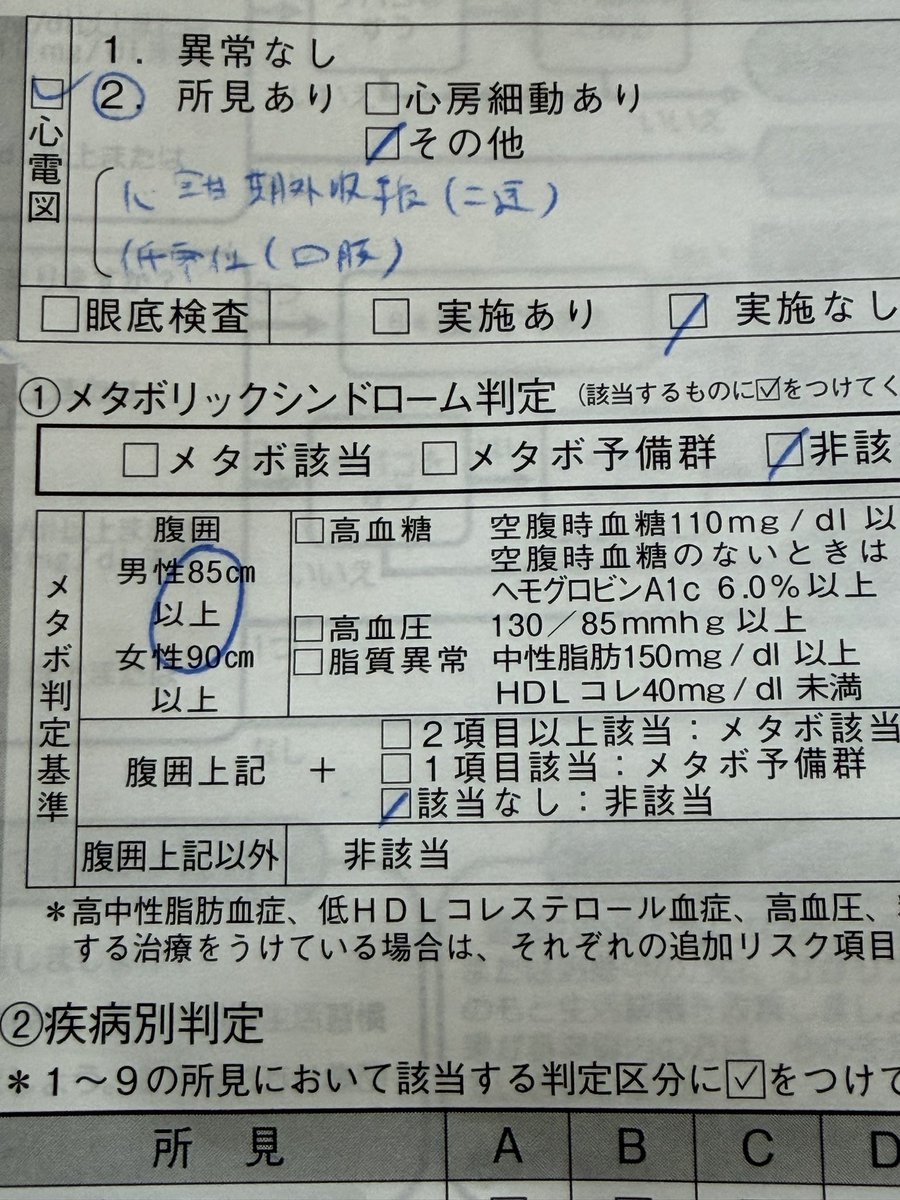 1. 異常なし
☑心電図
②. 所見あり □心房細動あり
☑その他
心室性期外収縮(二連)
低電位(四肢)
□眼底検査 □ 実施あり ☑ 実施なし
①メタボリックシンドローム判定 (該当するものに☑をつけてく
□メタボ該当 □メタボ予備群 ☑非該
メタボ判定基準
腹囲
男性85cm
以上
女性90cm
以上
□高血糖 空腹時血糖110mg/dl 以
空腹時血糖のないときは
ヘモグロビンA1c 6.0%以上
□高血圧 130/85mmhg 以上
□脂質異常 中性脂肪150mg/dl 以上
HDLコレ40mg/dl 未満
腹囲上記 +
□2項目以上該当:メタボ該当
□1項目該当:メタボ予備群
☑該当なし:非該当
腹囲上記以外 非該当
*高中性脂肪血症、低HDLコレステロール血症、高血圧、
する治療をうけている場合は、それぞれの追加リスク項目
②疾病別判定
*1~9の所見において該当する判定区分に☑をつけて
所見 A B C D